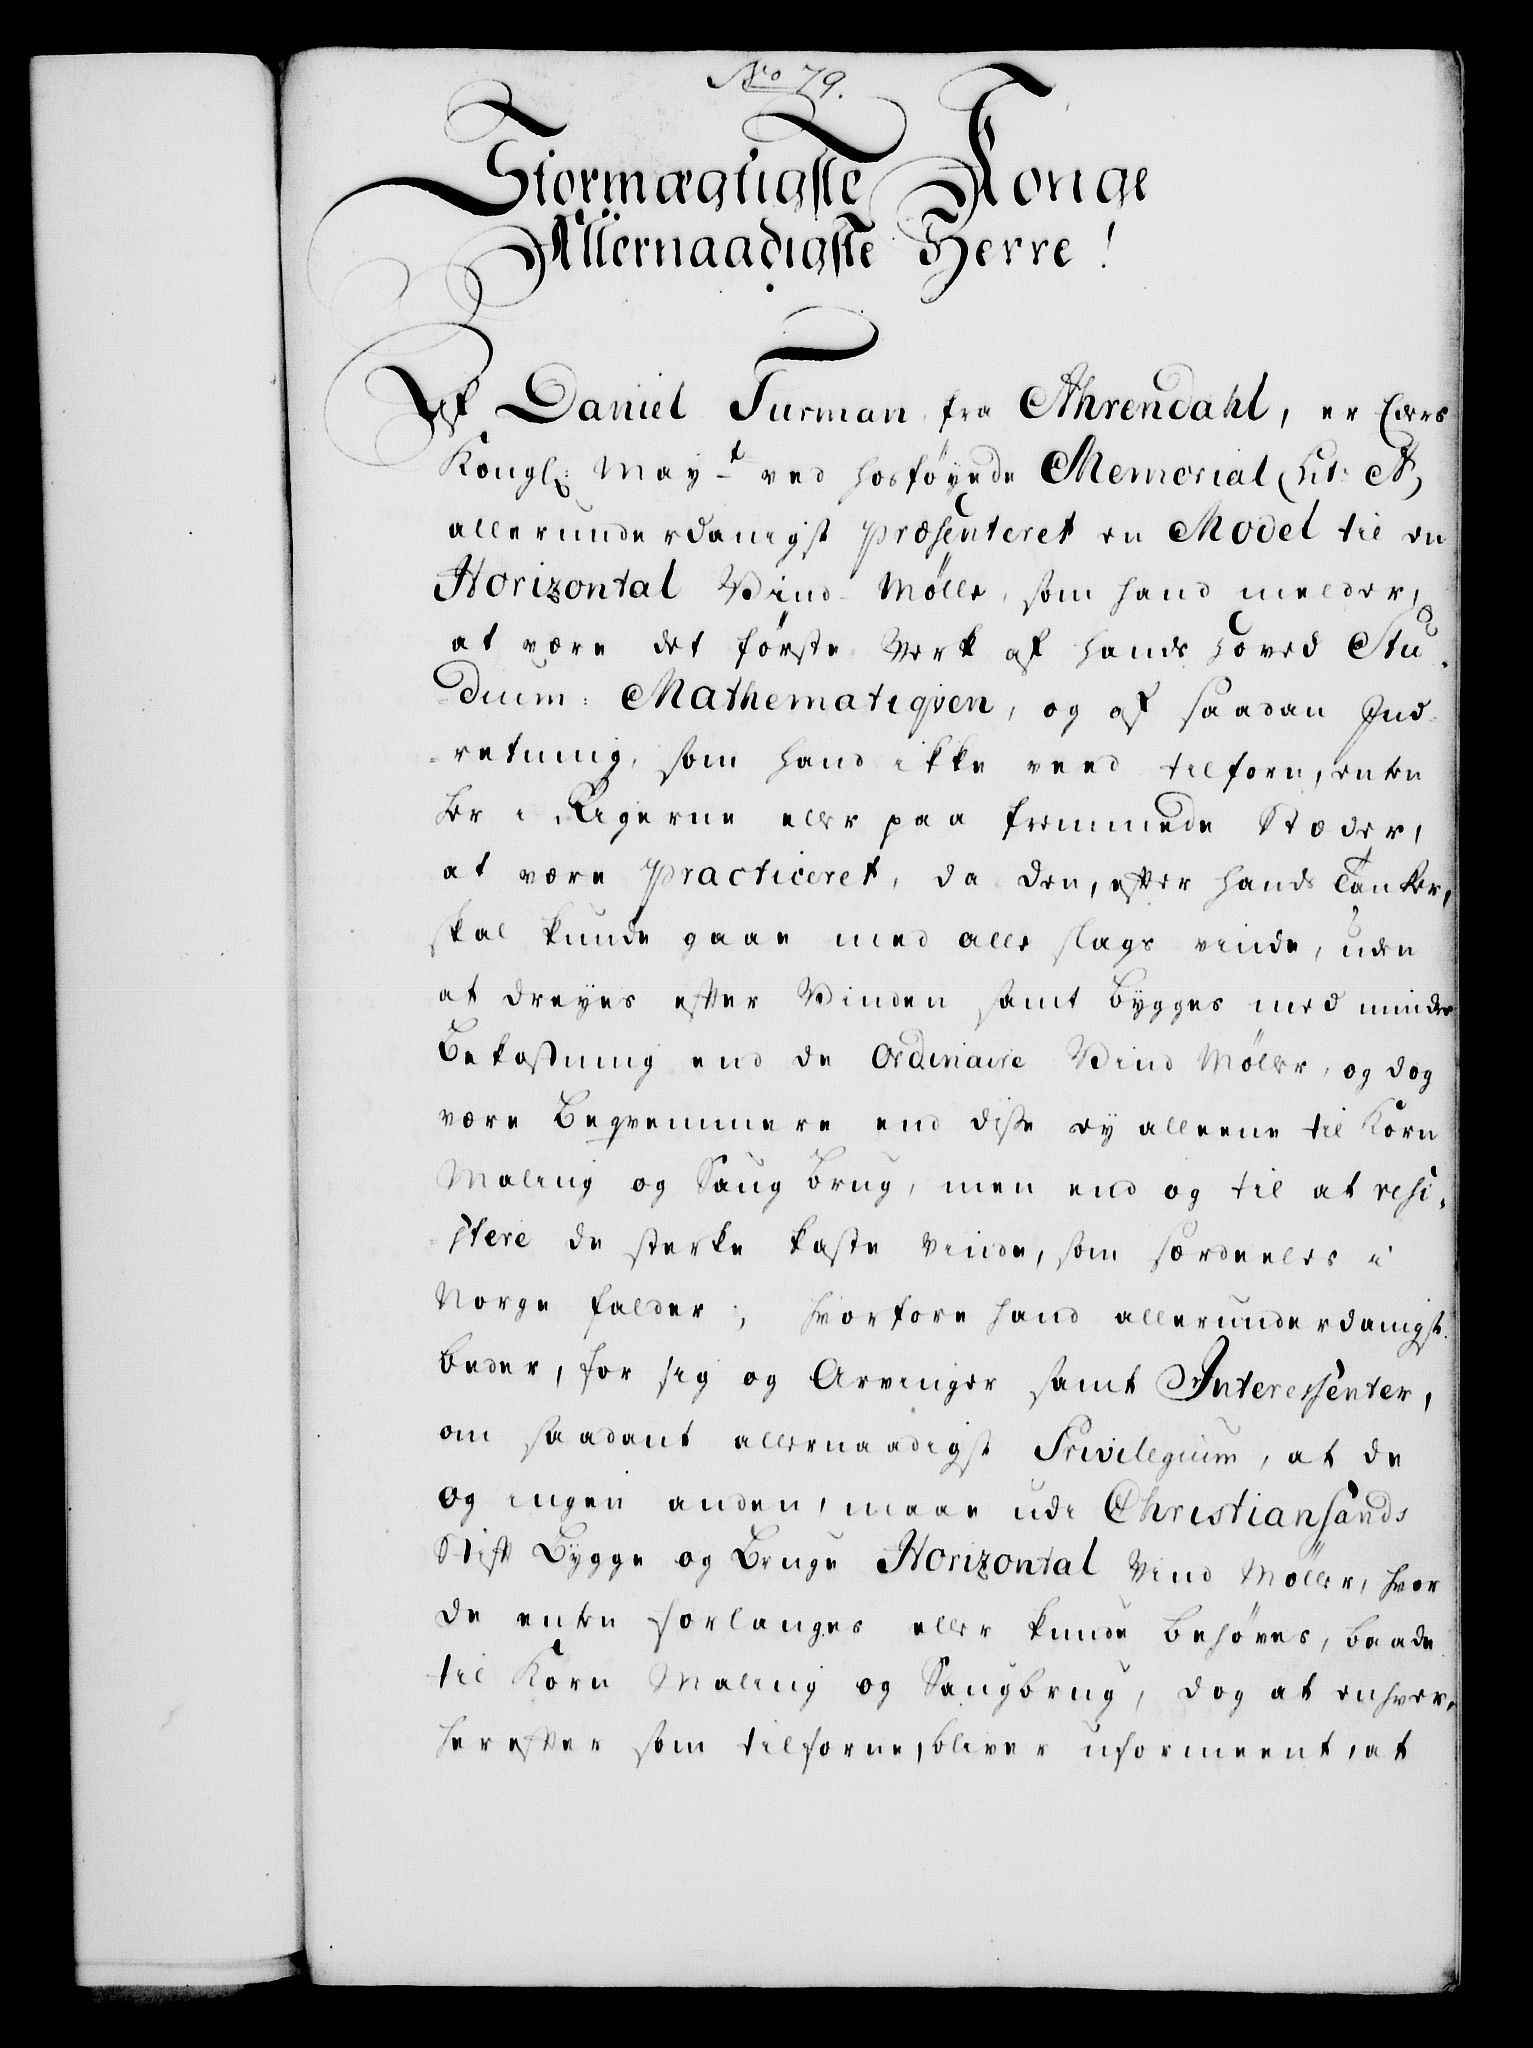 No 79.
Stormægtigste Konge
Allernaadigste Herre!
Af Daniel Turman fra Ahrendahl, er Eders
Kongl: May-t ved hosføyede Memorial Lit: A,
allerunderdanigst præsenteret en Model til en
Horizontal Vind-Mølle, som hand melder,
at være det første Verk af hands hoved Stu-
dium: Mathematiqven, og af saadan Ind-
-retning, som hand ikke veed tilforn, enten
her i Rigerne eller paa fremmede Stæder,
at være practiceret, da den, efter hands Tanker,
skal kunde gaae med alle slags vinde, uden
at dreyes efter Vinden samt bygges med minder
Bekostning end de Ordinaire Vind Møller, og dog
være beqvemmere end disse ey alleene til Korn
Maling og Saug brug, men end og til at resi-
-stere de sterke kaste Vinde, som særdeeles i
Norge falder; hvorfore hand allerunderdanigst
beder, for sig og Arvinger samt Interessenter,
om saadant allernaadigst Privilegium, at de
og ingen anden, maae udi Christiansands
Stift Bygge og Bruge Horizontal Vind Møller, hvor
de enten forlanges eller kunde behøves, baade
til Korn Maling og Saugbrug, dog at enhver,
herefter som tilforne, bliver uformeent, at